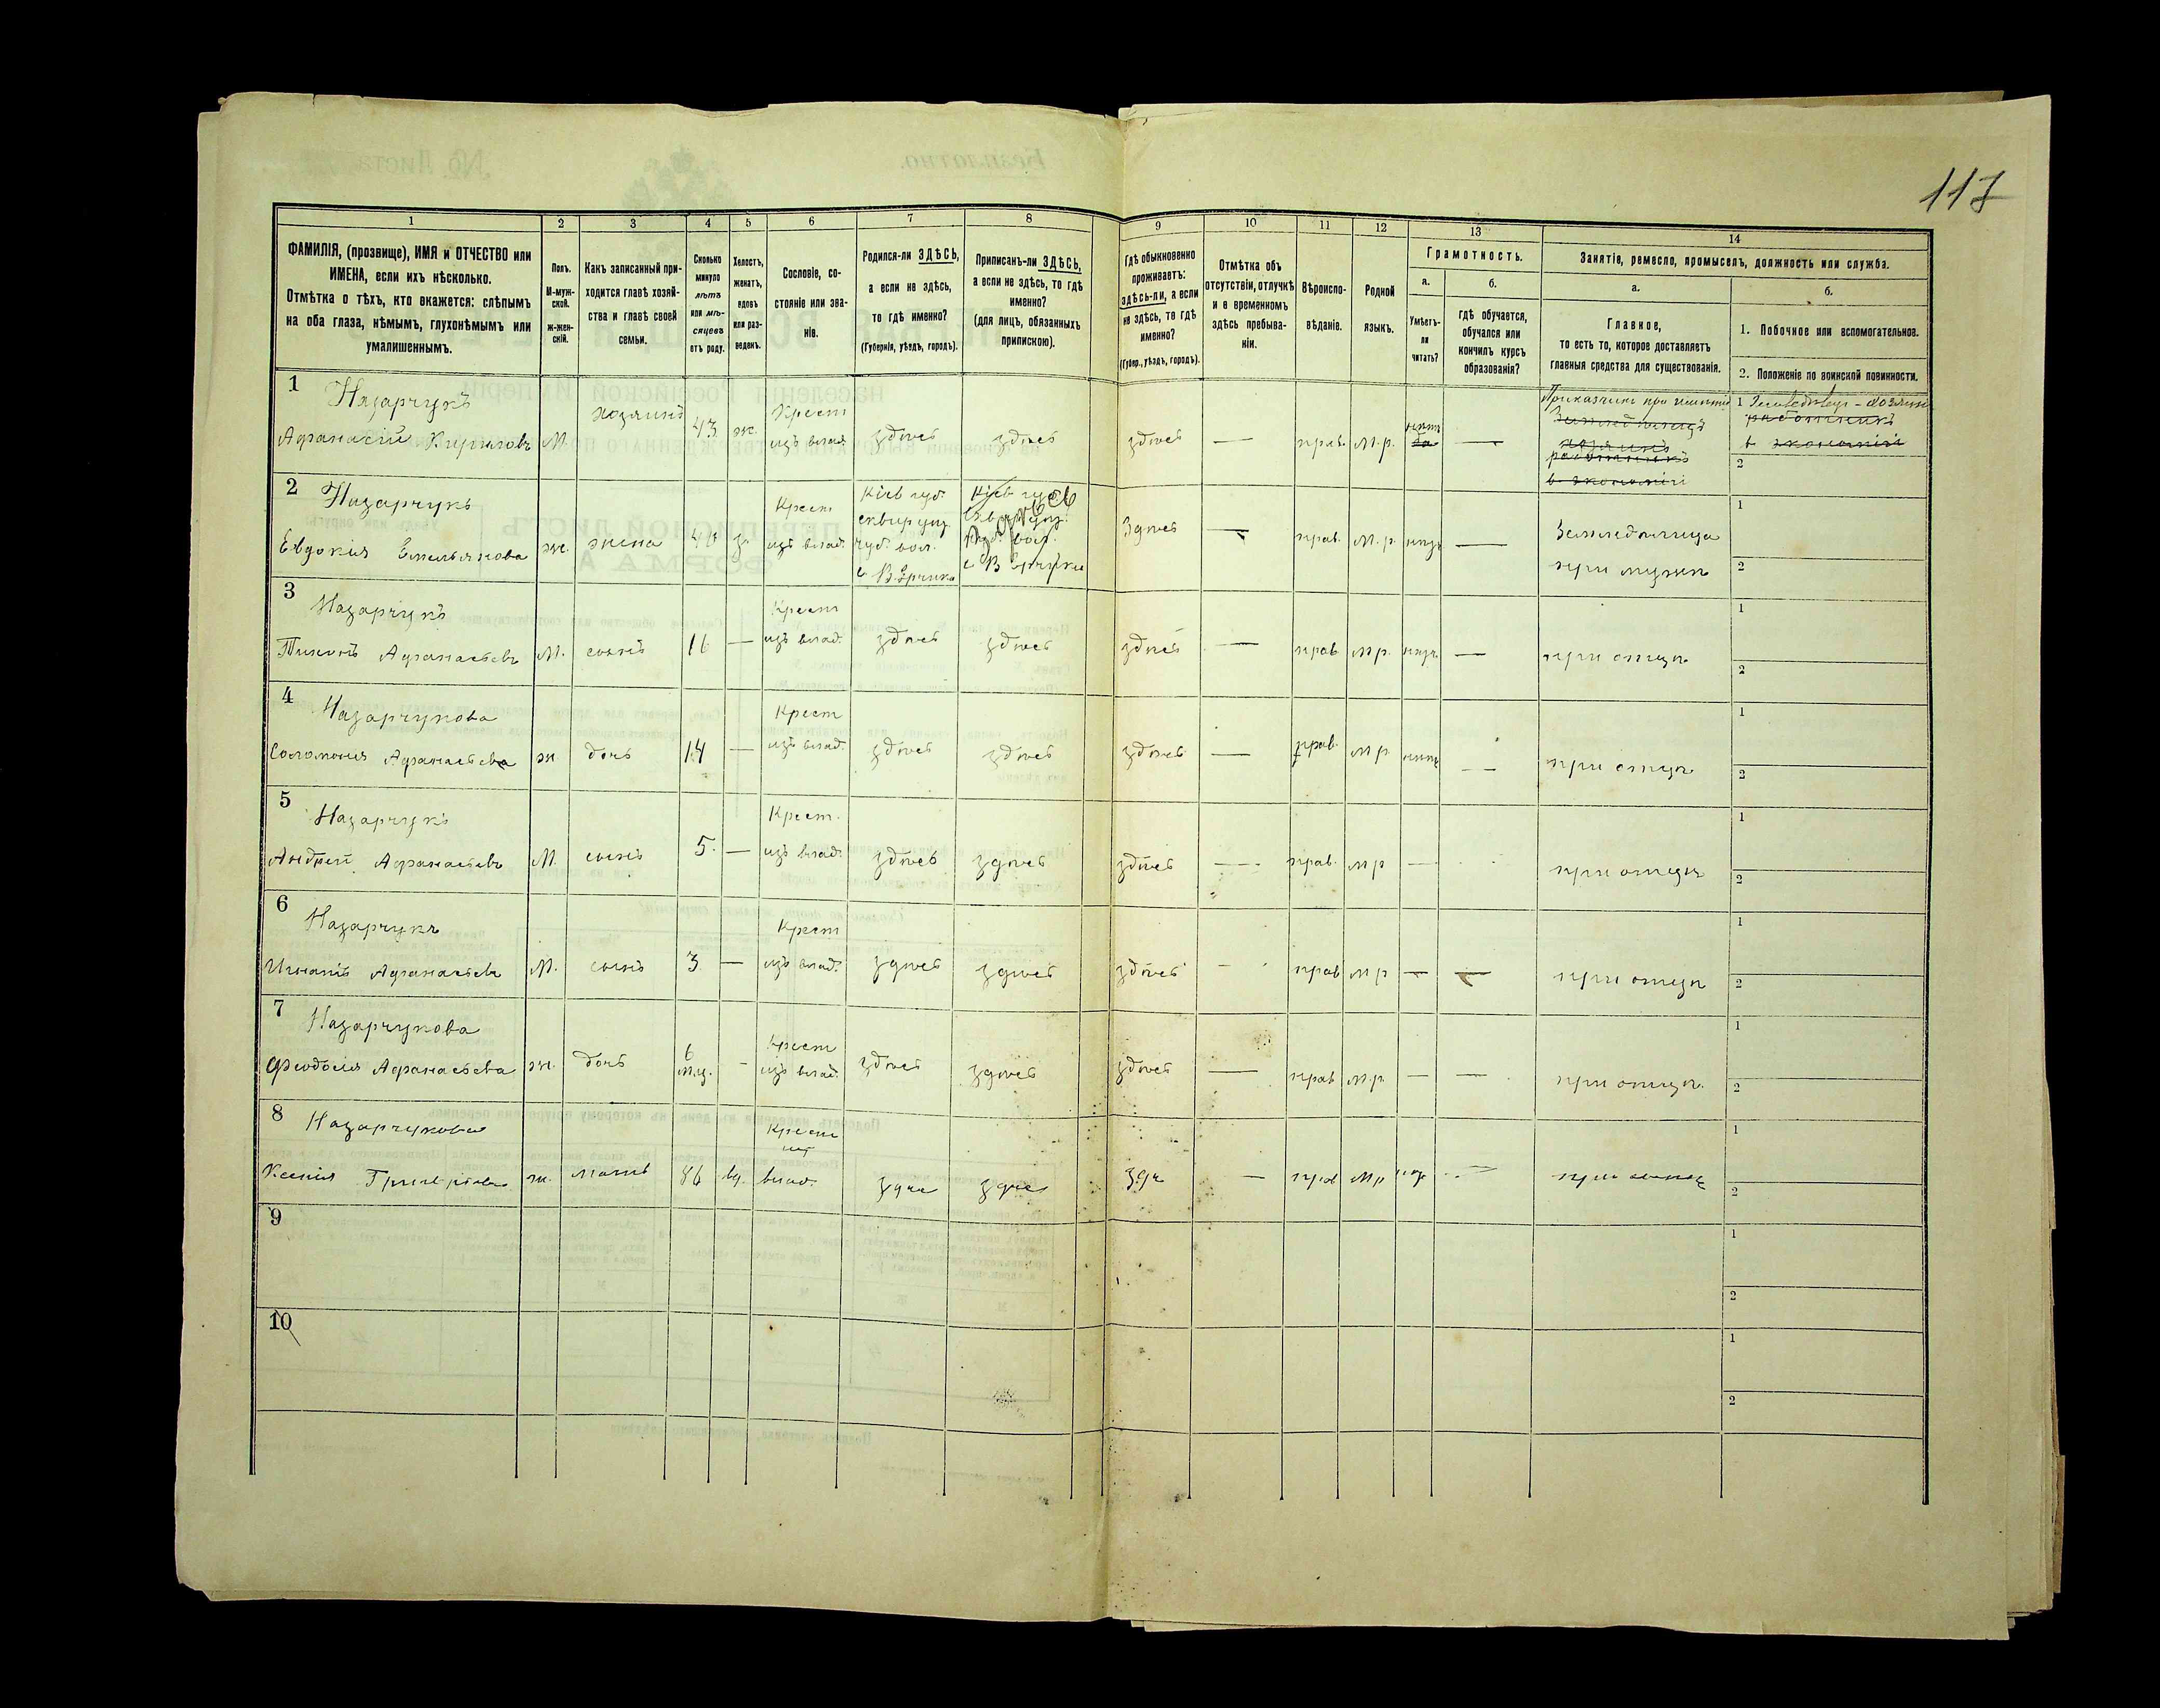 117
1 2 3 4 5 6 7 8 9 10 11 12 13 14
ФАМИЛІЯ, (прозвище), ИМЯ и ОТЧЕСТВО или
ИМЕНА, если ихъ нѣсколько.
Отмѣтка о тѣхъ, кто окажется: слѣпымъ
на оба глаза, нѣмымъ, глухонѣмымъ или
умалишеннымъ.
Полъ.
М-муж-
ской.
ж-жен-
скій.
Какъ записанный при-
ходится главѣ хозяй-
ства и главѣ своей
семьи.
Сколько
минуло
лѣтъ
или мѣ-
сяцевъ
отъ роду.
Холостъ,
женатъ,
вдовъ
или раз-
веденъ.
Сословіе, со-
стояніе или зва-
ніе.
Родился-ли ЗДѢСЬ,
а если не здѣсь,
то гдѣ именно?
(Губернія, уѣздъ, городъ).
Приписанъ-ли ЗДѢСЬ,
а если не здѣсь, то гдѣ
именно?
(для лицъ, обязанныхъ
припискою).
Гдѣ обыкновенно
проживаетъ:
здѣсь-ли, а если
не здѣсь, то гдѣ
именно?
(Губер., уѣздъ, городъ).
Отмѣтка объ
отсутствіи, отлучкѣ
и о временномъ
здѣсь пребыва-
ніи.
Вѣроиспо-
вѣданіе.
Родной
языкъ.
Грамотность.
а.
Умѣетъ-
ли
читать?
б.
гдѣ обучается,
обучался или
кончилъ курсъ
образованія?
Занятіе, ремесло, промыселъ, должность или служба.
а.
Главное,
то есть то, которое доставляетъ
главныя средства для существованія.
б.
1. Побочное или вспомогательное.
2. Положеніе по воинской повинности.
1 Назарчукъ
Афанасій Кириловъ М. хозяинъ 43 ж. Крест изъ влад. здѣсь здѣсь здѣсь — прав. М.р. нѣтъ —
Земледѣлецъ
хозяинъ
работникъ
в экономіи
1
работникъ
в экономіи
2
2 Назарчукъ
Евдокія Емельянова ж. жена 40 з. Крест изъ влад.
Кіев губ.
сквир уѣз.
вол.
с В. Ерчика
здѣсь
здѣсь — прав. М.р. нѣтъ —
Земледѣлица
при мужѣ
1
2
3 Назарчукъ
Тихонъ Афанасьевъ М. сынъ 16 — Крест изъ влад. здѣсь здѣсь здѣсь — прав. М.р. нѣтъ — при отцѣ
1
2
4 Назарчукова
Соломонія Афанасьева ж дочь 14 — Крест изъ влад. здѣсь здѣсь здѣсь — прав. М.р. нѣтъ — при отцѣ
1
2
5 Назарчукъ
Андрей Афанасьевъ М. сынъ 5. — Крест. изъ влад. здѣсь здѣсь здѣсь — прав. М.р — при отцѣ
1
2
6 Назарчукъ
Игнатъ Афанасьевъ М. сынъ 3 — Крест изъ влад. здѣсь здѣсь здѣсь — прав М.р — — при отцѣ
1
2
7 Назарчукова
Феодосія Афанасьева ж. дочь 6 мц. — Крест изъ влад. здѣсь здѣсь здѣсь — прав М.р. — — при отцѣ.
1
2
8 Назарчукова
Ксенія ж. мать 86 вд. Крест изъ влад. — прав М.р — при сынѣ
1
2
9
1
2
10
1
2